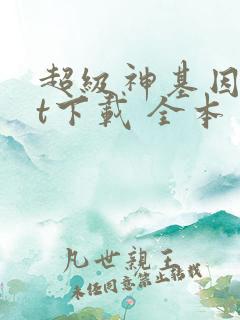 超級神基因
t下載 全本
凡世親王
未經同意禁止轉載